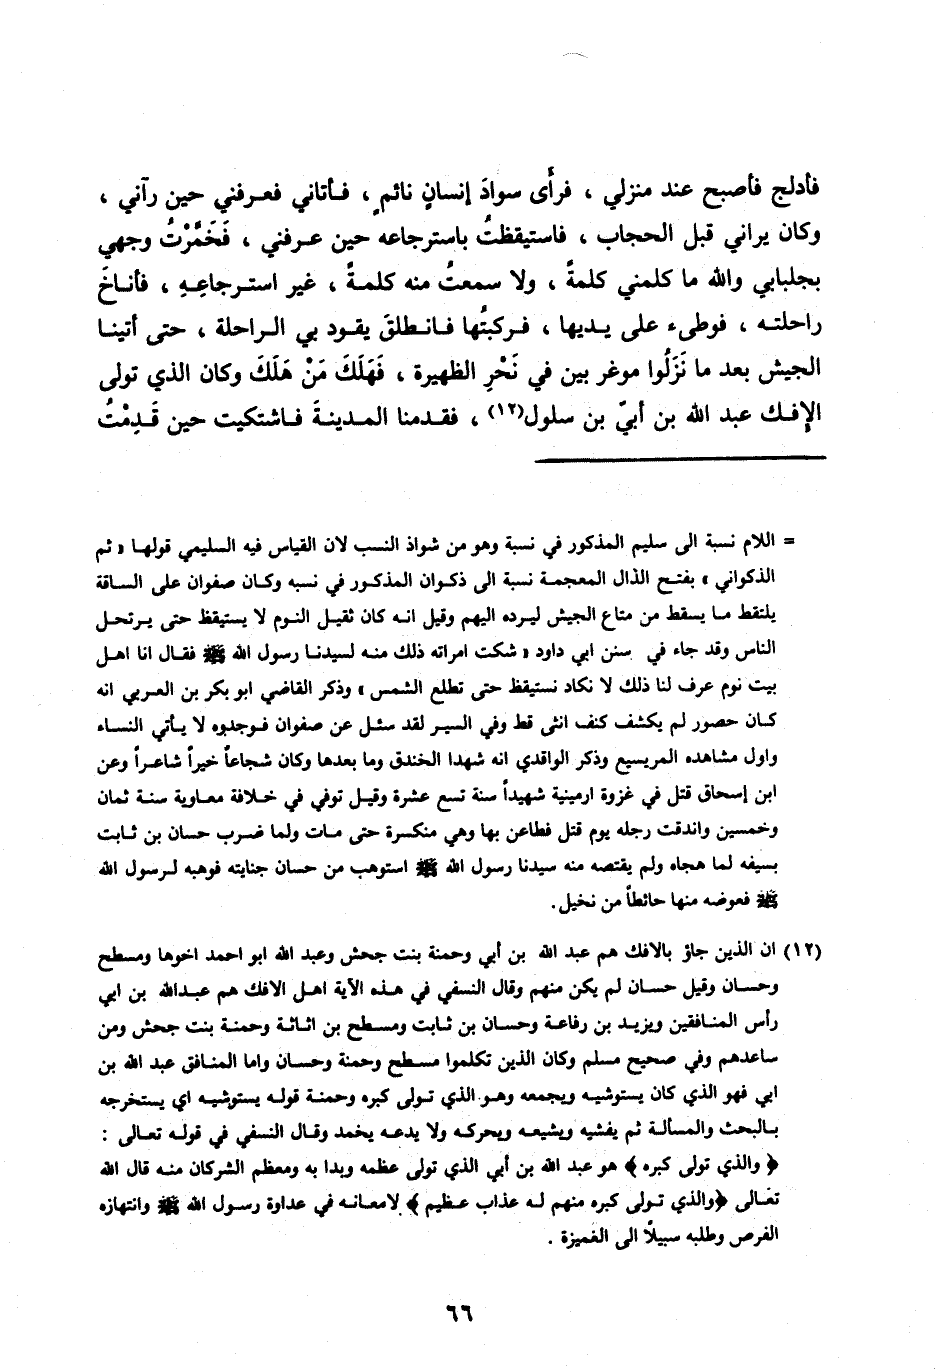 فأدلج فأصبح عند منزلي ، فرأَى سوادَ إنسانٍ نائمٍ ، فأتاني فعرفني حين رآني ،
وكان يراني قبل الحجاب ، فاستيقظتُ باسترجاعه حين عرفني ، فَخَمَّرْتُ وجهي
بجلبابي والله ما كلمني كلمةً ، ولا سمعتُ منه كلمةً ، غير استرجاعِهِ ، فأناخَ
راحلته ، فوطىء على يديها ، فركبتُها فانطلقَ يقود بي الراحلة ، حتى أتينا
الجيش بعد ما نَزَلُوا موغر بين في نَحْرِ الظهيرة ، فَهَلَكَ مَنْ هَلَكَ وكان الذي تولى
الإفك عبد الله بن أبيّ بن سلول(١٢) ، فقدمنا المدينةَ فاشتكيت حين قَدِمْتُ
= اللام نسبة الى سليم المذكور في نسبة وهو من شواذ النسب لان القياس فيه السليمي قولها « ثم
الذكواني » بفتح الذال المعجمة نسبة الى ذكوان المذكور في نسبه وكان صفوان على الساقة
يلتقط ما يسقط من متاع الجيش ليرده اليهم وقيل انه كان ثقيل النوم لا يستيقظ حتى يرتحل
الناس وقد جاء في سنن ابي داود « شكت امراته ذلك منه لسيدنا رسول الله ﷺ فقال انا اهل
بيت نوم عرف لنا ذلك لا نكاد نستيقظ حتى تطلع الشمس » وذكر القاضي ابو بكر بن العربي انه
كان حصور لم يكشف كنف انثى قط وفي السير لقد سئل عن صفوان فوجدوه لا يأتي النساء
واول مشاهده المريسيع وذكر الواقدي انه شهدا الخندق وما بعدها وكان شجاعاً خيراً شاعراً وعن
ابن إسحاق قتل في غزوة ارمينية شهيداً سنة تسع عشرة وقيل توفي في خلافة معاوية سنة ثمان
وخمسين واندقت رجله يوم قتل فطاعن بها وهي منكسرة حتى مات ولما ضرب حسان بن ثابت
بسيفه لما هجاه ولم يقتصه منه سيدنا رسول الله ﷺ استوهب من حسان جنايته فوهبه لرسول الله
ﷺ فعوضه منها حائطاً من نخيل .
(١٢) ان الذين جاؤ بالافك هم عبد الله بن أبي وحمنة بنت جحش وعبد الله ابو احمد اخوها ومسطح
وحسان وقيل حسان لم يكن منهم وقال النسفي في هذه الآية اهل الافك هم عبدالله بن ابي
رأس المنافقين ويزيد بن رفاعة وحسان بن ثابت ومسطح بن اثاثة وحمنة بنت جحش ومن
ساعدهم وفي صحيح مسلم وكان الذين تكلموا مسطح وحمنة وحسان واما المنافق عبد الله بن
ابي فهو الذي كان يستوشيه ويجمعه وهو الذي تولى كبره وحمنة قوله يستوشيه اي يستخرجه
بالبحث والمسألة ثم يفشيه ويشيعه ويحركه ولا يدعه يخمد وقال النسفي في قوله تعالى :
﴿ والذي تولى كبره ﴾ هو عبد الله بن أبي الذي تولى عظمه وبدا به ومعظم الشركان منه قال الله
تعالى ﴿والذي تولى كبره منهم له عذاب عظيم ﴾ لامعانه في عداوة رسول الله ﷺ وانتهازه
الفرص وطلبه سبيلاً الى الغميزة .
٦٦